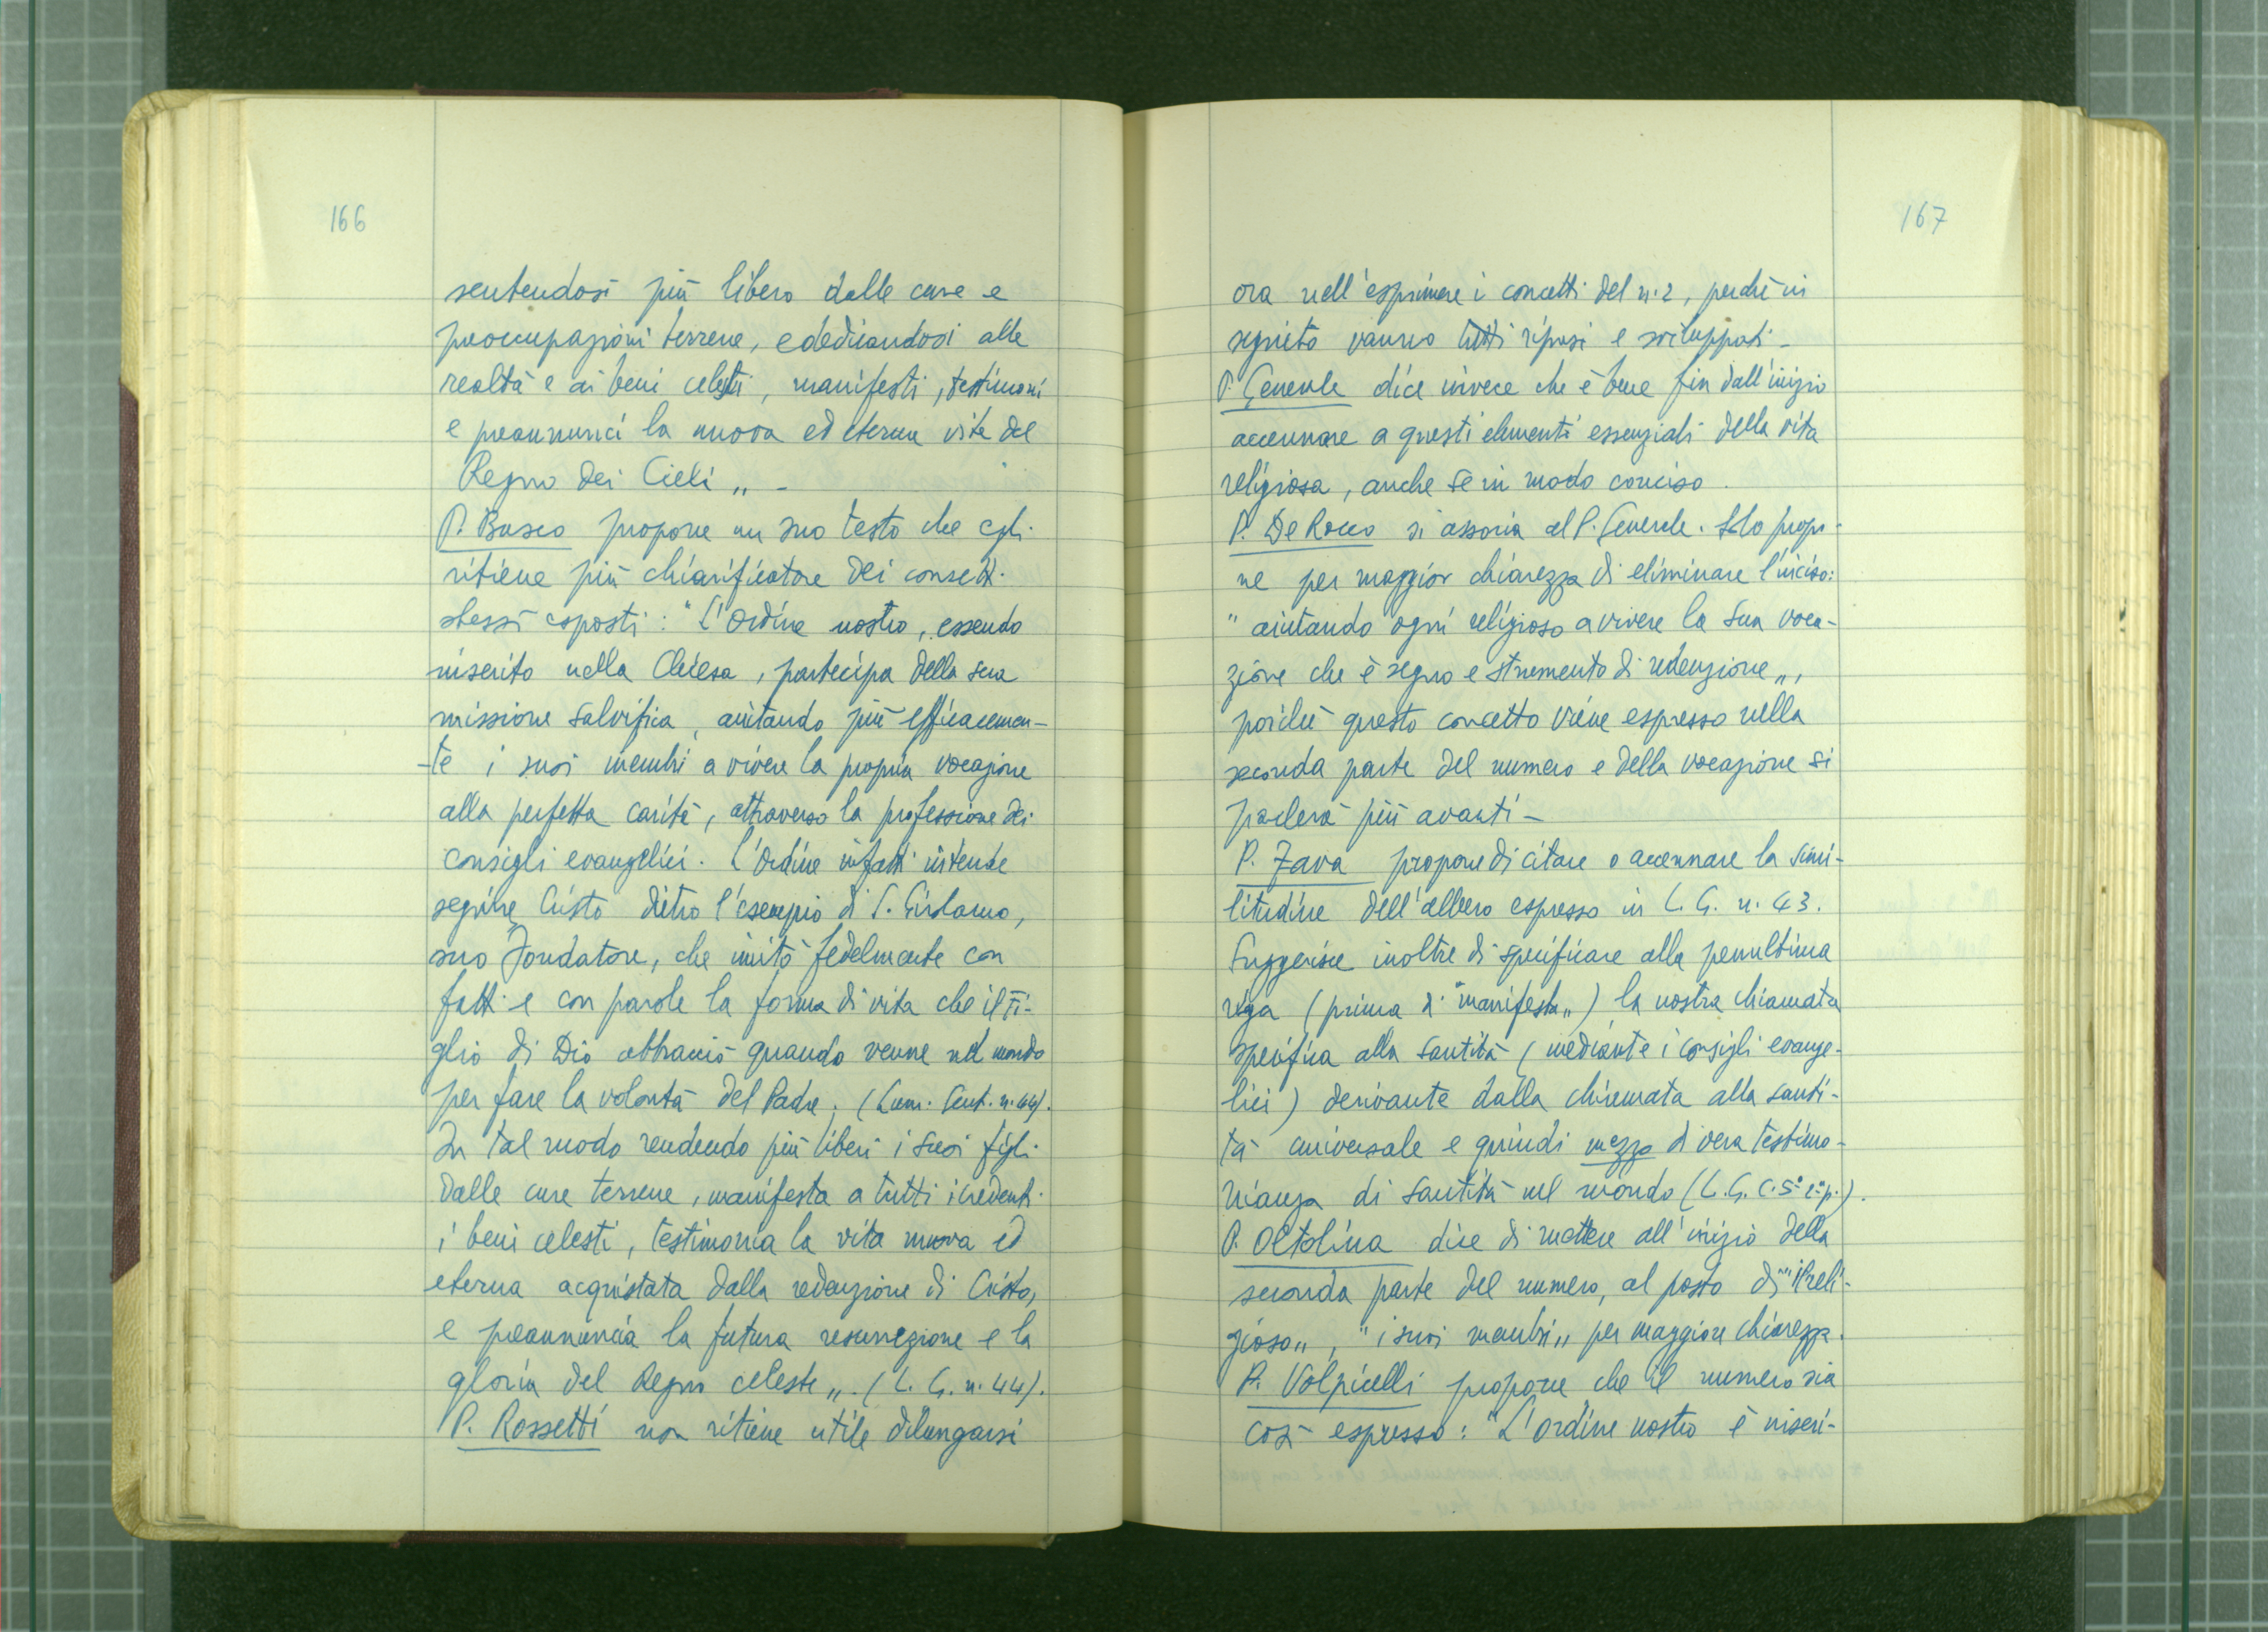 166
sentendosi più libero dalle cure e
preoccupazioni terrene, e dedicandosi alle
realtà e ai beni celesti, manifesti, testimoni
e preannunci la nuova ed eterna vita del
Regno dei Cieli „ –
P. Busco propone un suo testo che egli
ritiene più chiarificatore dei concetti
stessi esposti: "L'Ordine nostro, essendo
inserito nella Chiesa, partecipa della sua
missione salvifica, aiutando più efficacemen-
-te i suoi membri a vivere la propria vocazione
alla perfetta carità, attraverso la professione dei
consigli evangelici. L'Ordine infatti intende
seguire Cristo dietro l'esempio di S. Girolamo,
suo Fondatore, che imitò fedelmente con
fatti e con parole la forma di vita che il Fi-
glio di Dio abbracciò quando venne nel mondo
per fare la volontà del Padre; (Lum. Gent. n. 44).
In tal modo rendendo più liberi i suoi figli
dalle cure terrene, manifesta a tutti i credenti
i beni celesti, testimonia la vita nuova ed
eterna acquistata dalla redenzione di Cristo,
e preannuncia la futura resurrezione e la
gloria del Regno celeste „. (L. G. n. 44).
P. Rossetti non ritiene utile dilungarsi
167
ora nell'esprimere i concetti del n. 2, perchè in
seguito vanno tutti ripresi e sviluppati –
P. Generale dice invece che è bene fin dall'inizio
accennare a questi elementi essenziali della vita
religiosa, anche se in modo conciso.
P. De Rocco si associa al P. Generale. Solo propo-
ne per maggior chiarezza di eliminare l'inciso:
"aiutando ogni religioso a vivere la sua voca-
zione che è segno e strumento di redenzione „,
poichè questo concetto viene espresso nella
seconda parte del numero e della vocazione si
parlerà più avanti –
P. Zava propone di citare o accennare la simi-
litudine dell'albero espresso in L. G. n. 43.
Suggerisce inoltre di specificare alla penultima
riga (prima di "manifesta„) la nostra chiamata
specifica alla santità (mediante i consigli evange-
lici) derivante dalla chiamata alla santi-
tà universale e quindi mezzo di vera testimo-
nianza di santità nel mondo (L. G. C. 5°
P. Oltolina dice di mettere all'inizio della
seconda parte del numero, al posto di "il reli-
gioso„, "i suoi membri„ per maggiore chiarezza.
P. Volpicelli propone che il numero sia
così espresso: "L'ordine nostro è inseri-